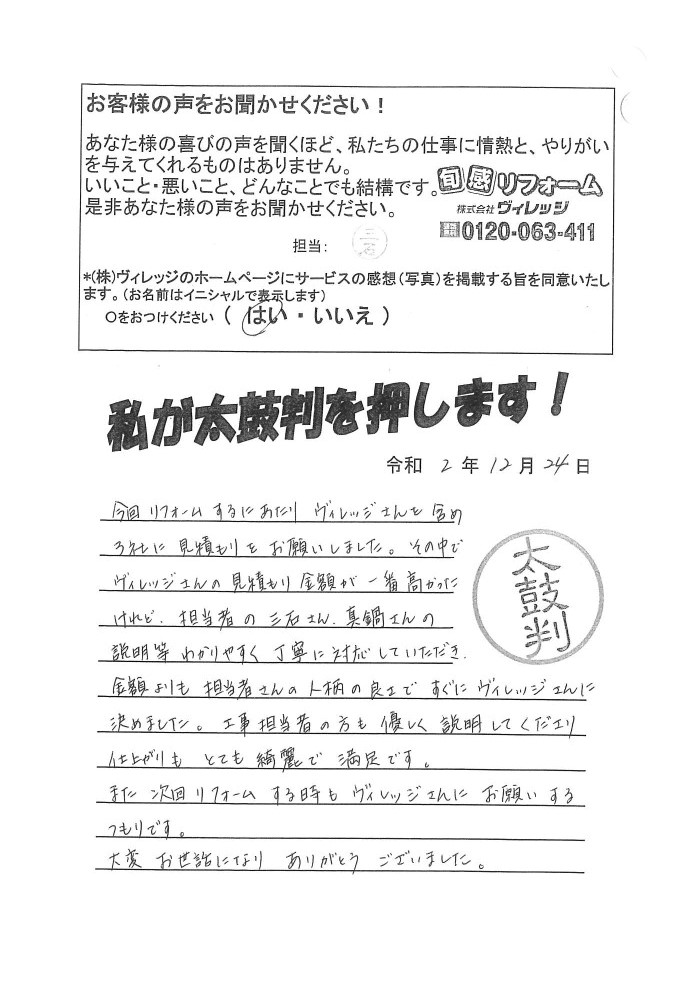 お客様の声をお聞かせください！
あなた様の喜びの声を聞くほど、私たちの仕事に情熱と、やりがい
を与えてくれるものはありません。
いいこと・悪いこと、どんなことでも結構です。
是非あなた様の声をお聞かせください。
旬感リフォーム
株式会社ヴィレッジ
0120-063-411
担当：
三石
*(株)ヴィレッジのホームページにサービスの感想（写真）を掲載する旨を同意いたし
ます。（お名前はイニシャルで表示します）
○をおつけください（ はい ・ いいえ ）
私が太鼓判を押します！
令和 2 年 12 月 24 日
今回リフォームするにあたり ヴィレッジさんを含め
3社に見積もりをお願いしました。その中で
ヴィレッジさんの見積もり金額が一番高かった
けれど、担当者の三石さん、真鍋さんの
説明等わかりやすく丁寧に対応していただき、
金額よりも担当者さんの人柄の良さですぐにヴィレッジさんに
決めました。工事担当者の方も優しく説明してくださり
仕上がりもとても綺麗で満足です。
また次回リフォームする時もヴィレッジさんにお願いする
つもりです。
大変お世話になりありがとうございました。
太鼓判